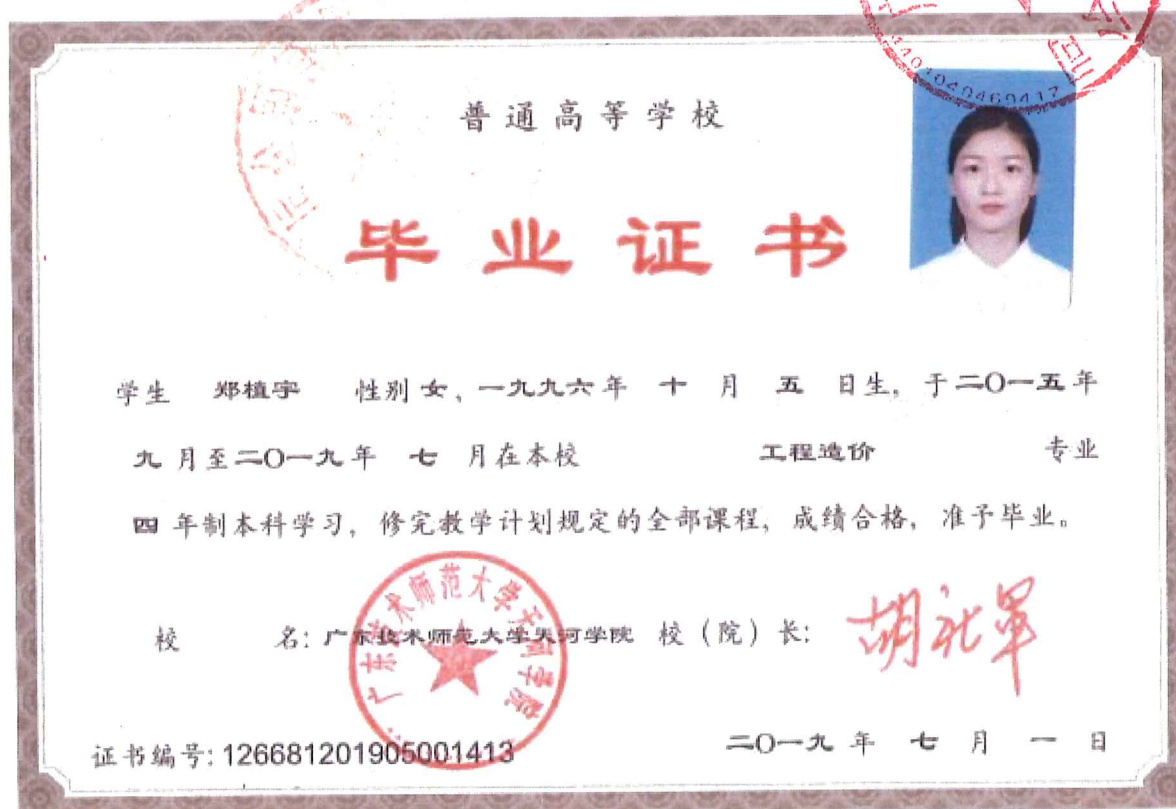 普通高等学校
毕业证书
学生 郑植宇 性别 女、一九九六年 十 月 五 日生，于二〇一五年
九 月至二〇一九年 七 月在本校 工程造价 专业
四 年制本科学习，修完教学计划规定的全部课程，成绩合格，准予毕业。
校 名：广东技术师范大学天河学院 校（院）长：
广东技术师范大学天河学院
证书编号：126681201905001413
二〇一九 年 七 月 一 日